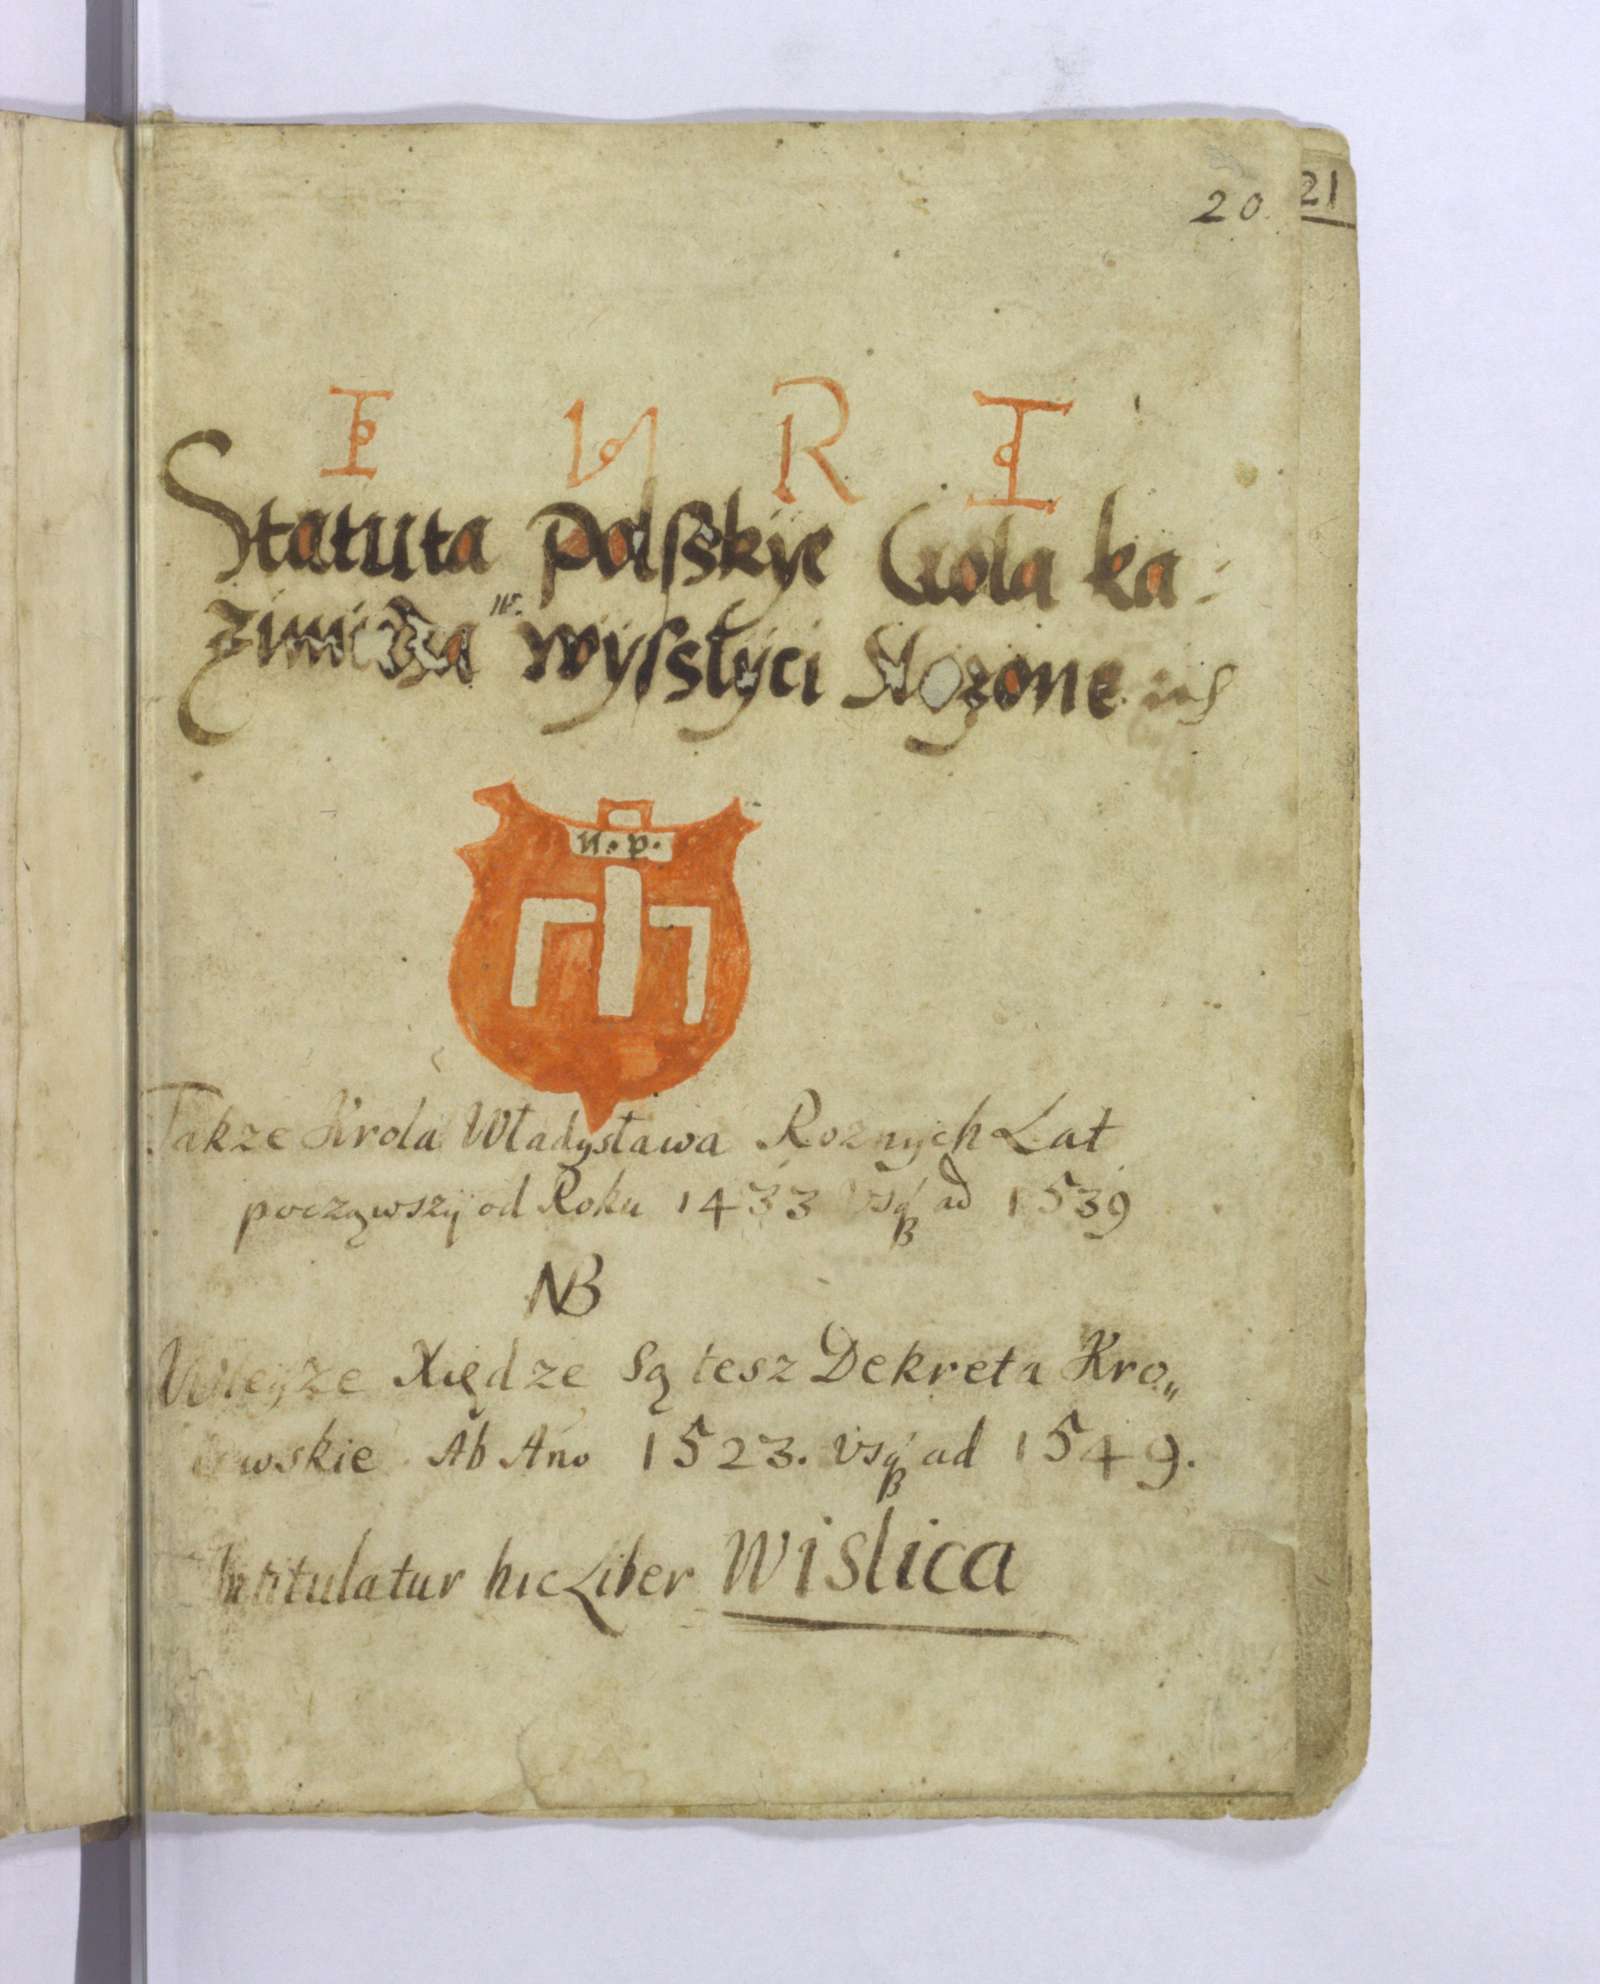 20. 21
I N R I
Statuta polsskye Crola ka-
zimirza w wysslyci slozone
n. p.
Takze Krola Władysława Roznych Lat
począwszÿ od Roku 1433 Vsq ad 1539
NB
Wteyże Xiędze Są tesz Dekreta Kro„
lewskie Ab Ano 1523. Vsq ad 1549.
Intitulatur hic Liber Wislica